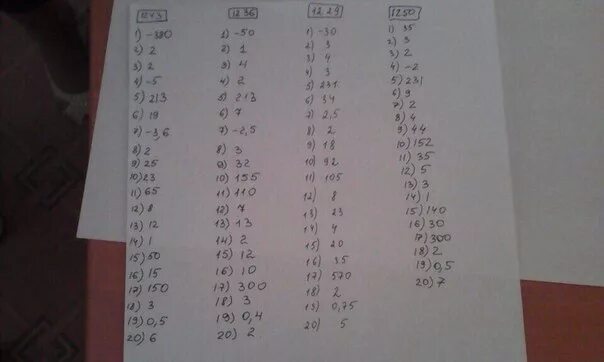 1243
1) -380
2) 2
3) 2
4) -5
5) 213
6) 19
7) -3,6
8) 2
9) 25
10) 23
11) 65
12) 8
13) 12
14) 1
15) 50
16) 15
17) 150
18) 3
19) 0,5
20) 6
1236
1) -50
2) 1
3) 4
4) 2
5) 213
6) 7
7) -2,5
8) 3
9) 32
10) 155
11) 110
12) 7
13) 13
14) 2
15) 12
16) 10
17) 300
18) 3
19) 0,4
20) 2
1229
1) -30
2) 3
3) 4
4) 3
5) 231
6) 34
7) 2,5
8) 2
9) 18
10) 92
11) 105
12) 8
13) 23
14) 4
15) 20
16) 35
17) 570
18) 2
19) 0,75
20) 5
1250
1) 35
2) 3
3) 2
4) -2
5) 231
6) 9
7) 2
8) 4
9) 44
10) 152
11) 35
12) 5
13) 3
14) 1
15) 140
16) 30
17) 300
18) 2
19) 0,5
20) 7